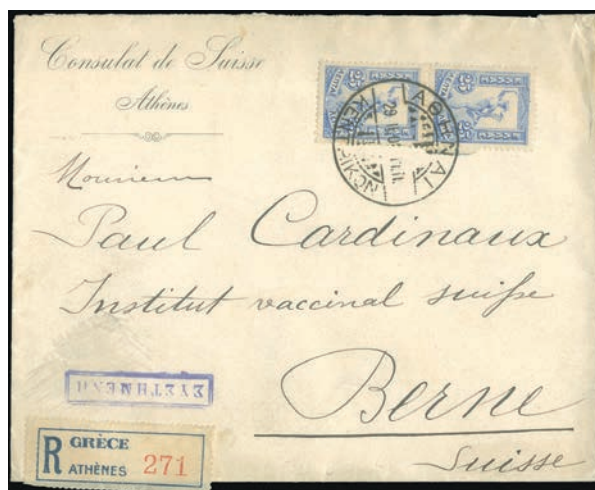 Consulat de Suisse
Athènes
25 25
ΛΕΠΤΑ
ΑΘΗΝΑΙ
29
Monsieur
Paul Cardinaux
Institut vaccinal suisse
Berne
Suisse
ΣΥΣΤΗΜΕΝΗ
R GRÈCE
ATHÈNES 271